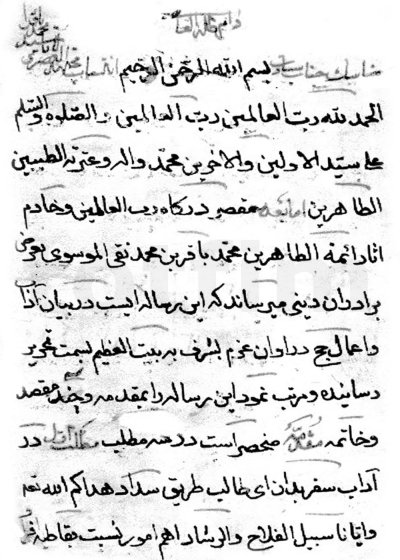 مناسك
بسم الله الرحمن الرحيم
الحمد لله رب العالمين رب العالمين والصلوة والسلم
على سيد الاولين والاخرين محمد واله وعترته الطيبين
الطاهرين اما بعد مقصر دركاه رب العالمين وخادم
اثار ائمة الطاهرين محمد باقر بن محمد نقى الموسوى بعرض
برادران دينى ميرساند كه اين رساله ايست در بيان آداب
واعمال حج در اوان عزم بشرف به بيت العظيم بسمت تحرير
رسانيده ومرتب نمود اين رساله را بمقدمه وچند مقصد
وخاتمه مقدمه منحصر است در سه مطلب مطلب اول در
آداب سفر بدان اى طالب طريق سداد هداكم الله تعه
وايانا سبيل الفلاح والرشاد اهم امور نسبت بقاطبه